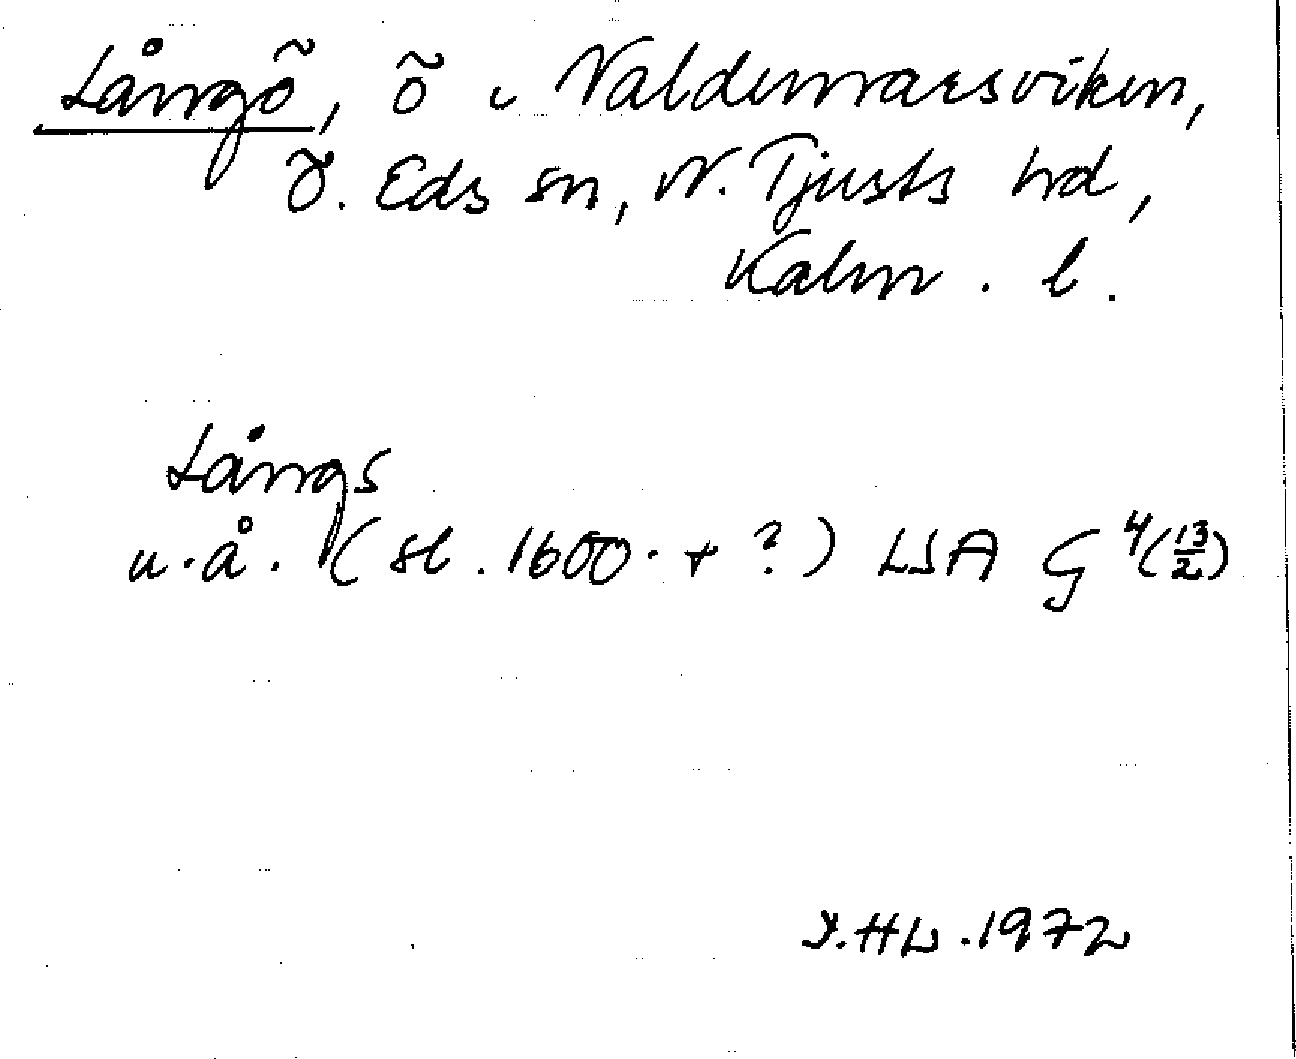 Långö, ö i Valdemarsviken,
Ö. Eds sn, N. Tjusts hd,
Kalm. l.
Långs
u.å. (sl. 1600-t ?) LSA G 4(13/2)
I.HL.1972